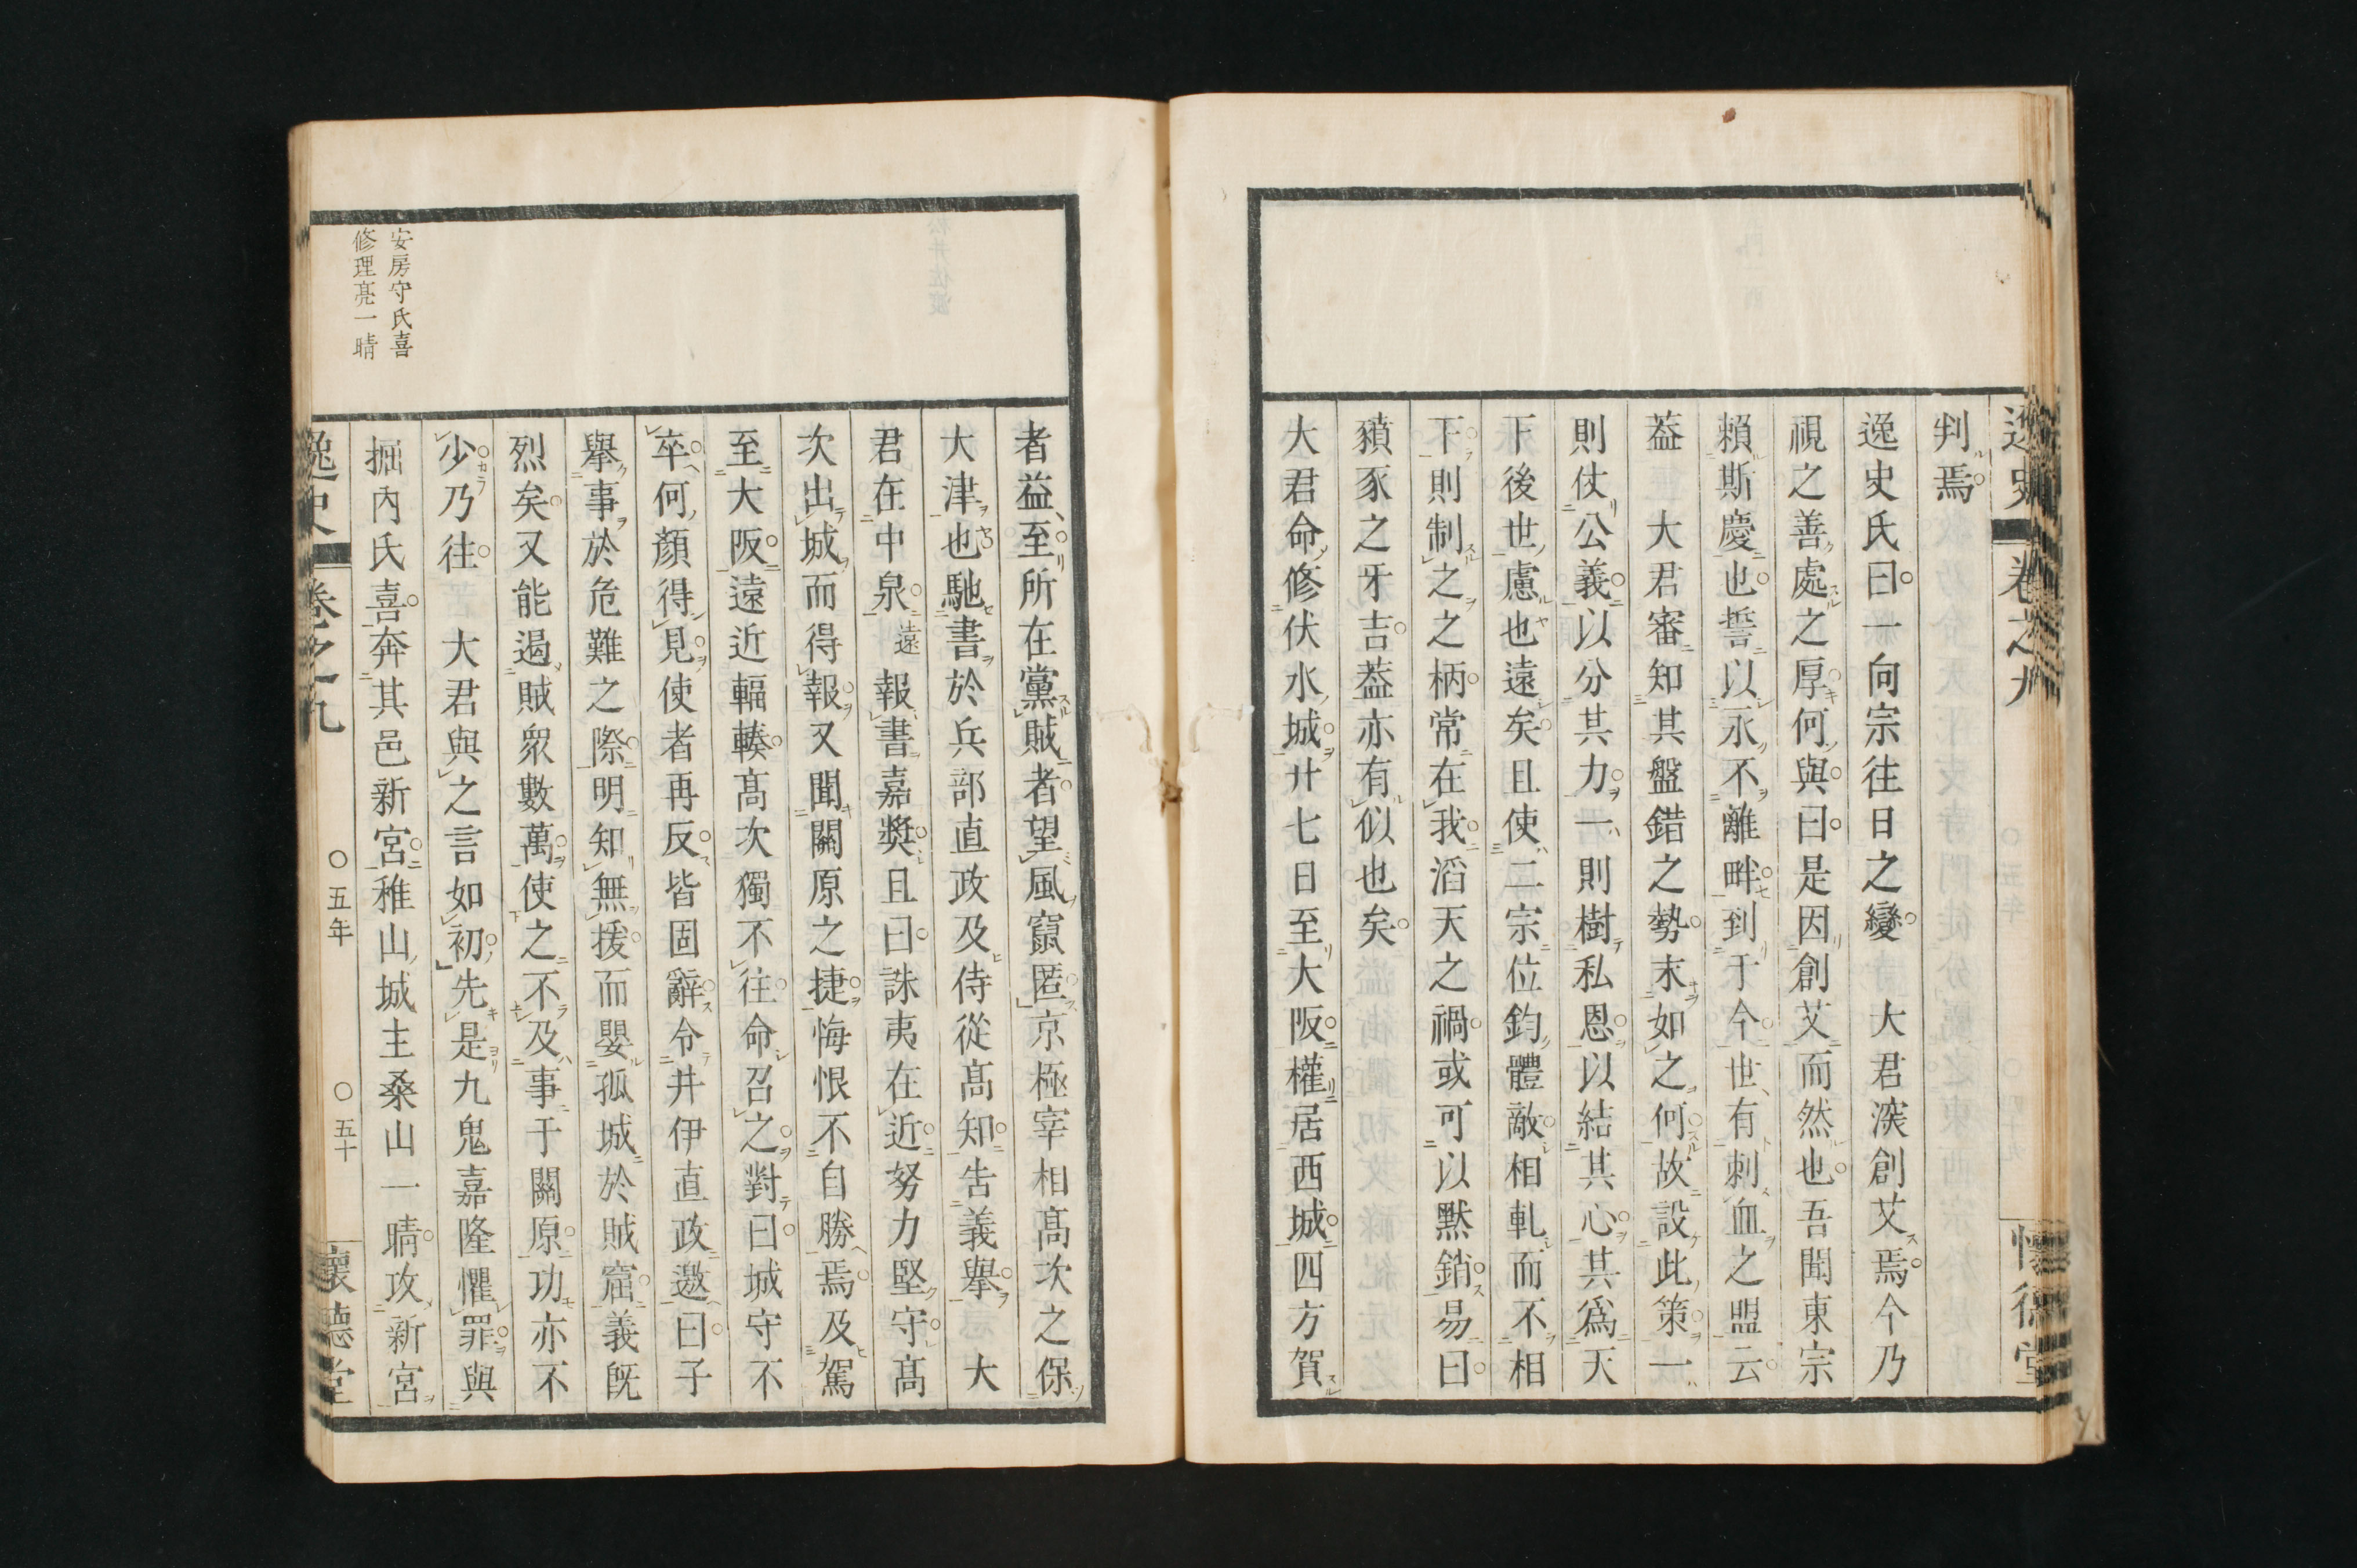 逸史 卷之九
懷德堂
判焉
逸史氏曰一向宗往日之變 大君深創艾焉今乃
視之善處之厚何與曰是因創艾而然也吾聞東宗
賴斯慶也誓以永不離畔到于今世有刺血之盟云
葢 大君審知其盤錯之勢末如之何故設此策一
則仗公義以分其力一則樹私恩以結其心其爲天
下後世慮也遠矣且使二宗位鈞體敵相軋而不相
下則制之之柄常在我滔天之禍或可以默銷易曰
豶豕之牙吉葢亦有似也矣
大君命修伏水城廿七日至大阪權居西城四方賀
者益至所在黨賊者望風竄匿京極宰相髙次之保
大津也馳書於兵部直政及侍從髙知告義擧 大
君在中泉遠報書嘉奬且曰誅夷在近努力堅守髙
次出城而得報又聞關原之捷悔恨不自勝焉及駕
至大阪遠近輻輳髙次獨不往命召之對曰城守不
卒何顏得見使者再反皆固辭令井伊直政邀曰子
擧事於危難之際明知無援而嬰孤城於賊窟義既
烈矣又能遏賊衆數萬使之不及事于關原功亦不
少乃往 大君與之言如初先是九鬼嘉隆懼罪與
掘內氏喜奔其邑新宮稚山城主桑山一晴攻新宮
安房守氏喜
修理亮一晴
逸史 卷之九 ○五年 ○五十 懷德堂